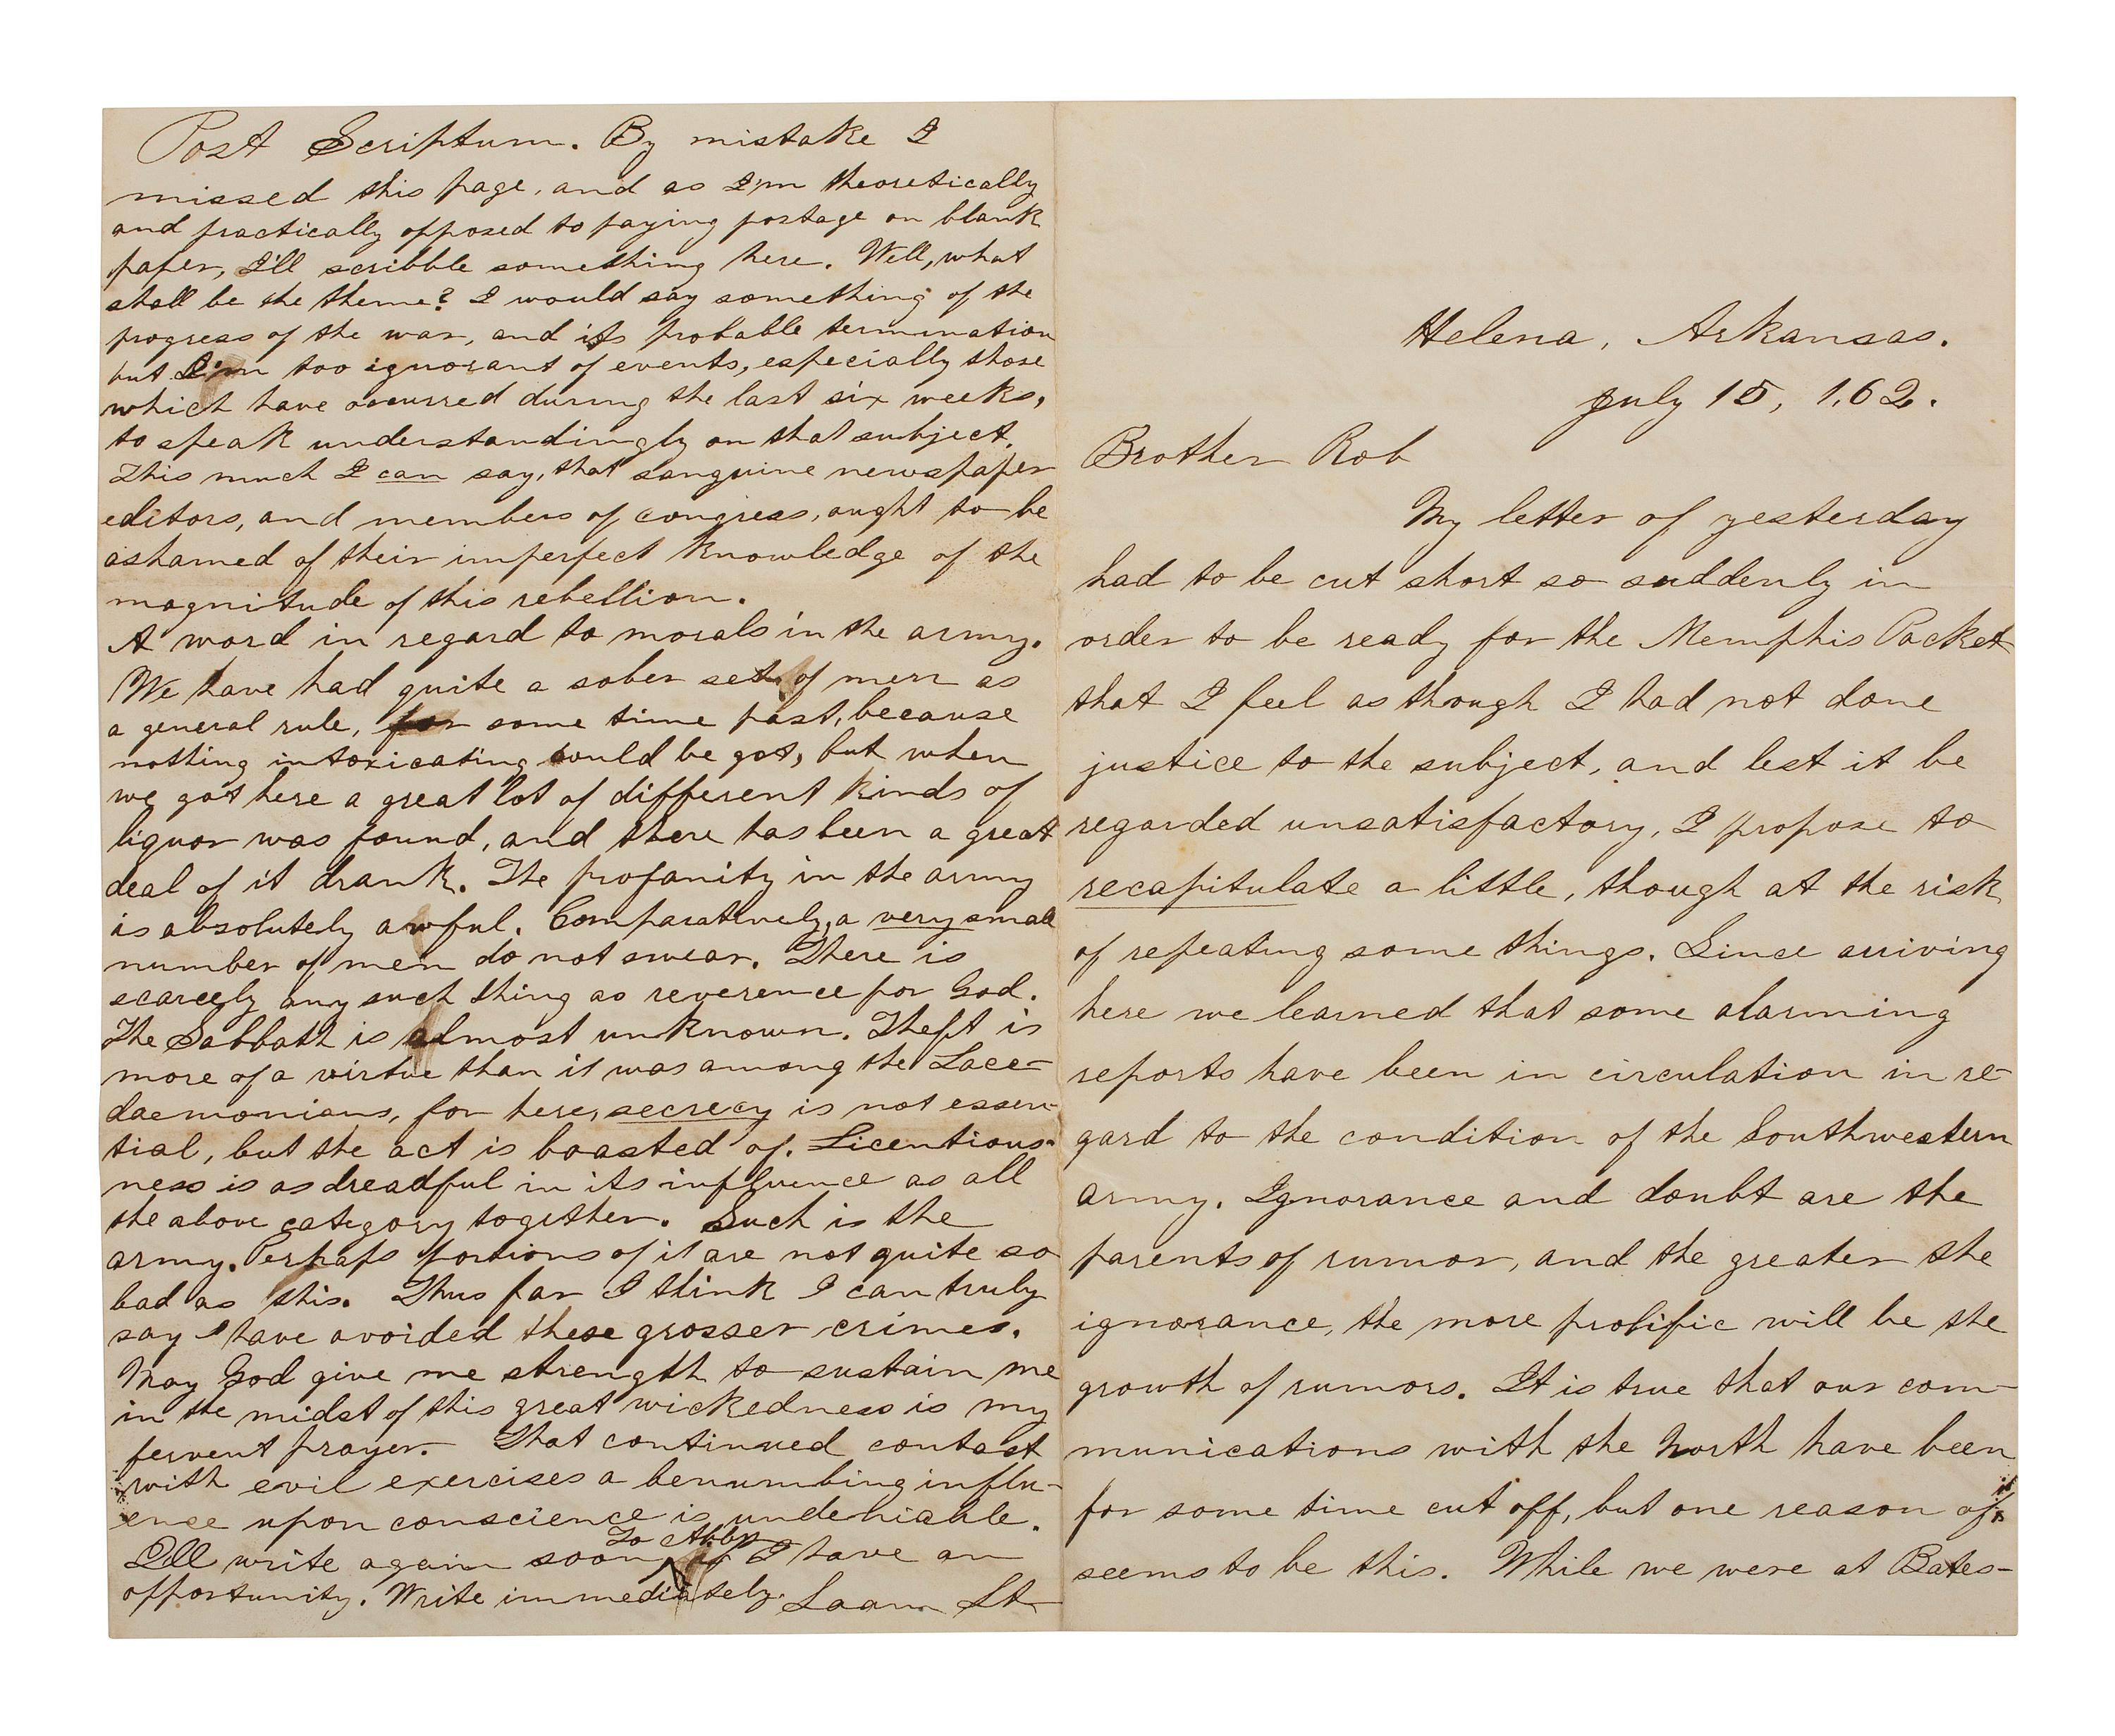 Post Scriptum. By mistake I
missed this page, and as I'm theoretically
and practically opposed to paying postage on blank
paper, I'll scribble something here. Well, what
shall be the theme? I would say something of the
progress of the war, and its probable termination
but I'm too ignorant of events, especially those
which have occurred during the last six weeks,
to speak understandingly on that subject.
This much I can say, that sanguine newspaper
editors, and members of congress, ought to be
ashamed of their imperfect knowledge of the
magnitude of this rebellion.
A word in regard to morals in the army.
We have had quite a sober set of men as
a general rule, for some time past, because
nothing intoxicating could be got, but when
we got here a great lot of different kinds of
liquor was found, and there has been a great
deal of it drank. The profanity in the army
is absolutely awful. Comparatively, a very small
number of men do not swear. There is
scarcely any such thing as reverence for God.
The Sabbath is almost unknown. Theft is
more of a virtue than it was among the Lace-
daemonians, for here, secrecy is not essen-
tial, but the act is boasted of. Licentious-
ness is as dreadful in its influence as all
the above category together. Such is the
army. Perhaps portions of it are not quite so
bad as this. Thus far I think I can truly
say I have avoided these grosser crimes.
May God give me strength to sustain me
in the midst of this great wickedness is my
fervent prayer. That continued contact
with evil exercises a benumbing influ-
ence upon conscience is undeniable.
To Abby
I'll write again soon if I have an
opportunity. Write immediately.
Helena, Arkansas.
July 15, 1.62.
Brother Rob
My letter of yesterday
had to be cut short so suddenly in
order to be ready for the Memphis Packet
that I feel as though I had not done
justice to the subject, and lest it be
regarded unsatisfactory, I propose to
recapitulate a little, though at the risk
of repeating some things. Since arriving
here we learned that some alarming
reports have been in circulation in re-
gard to the condition of the Southwestern
army. Ignorance and doubt are the
parents of rumor, and the greater the
ignorance, the more prolific will be the
growth of rumors. It is true that our com-
munications with the North have been
for some time cut off, but one reason of it
seems to be this. While we were at Bates-